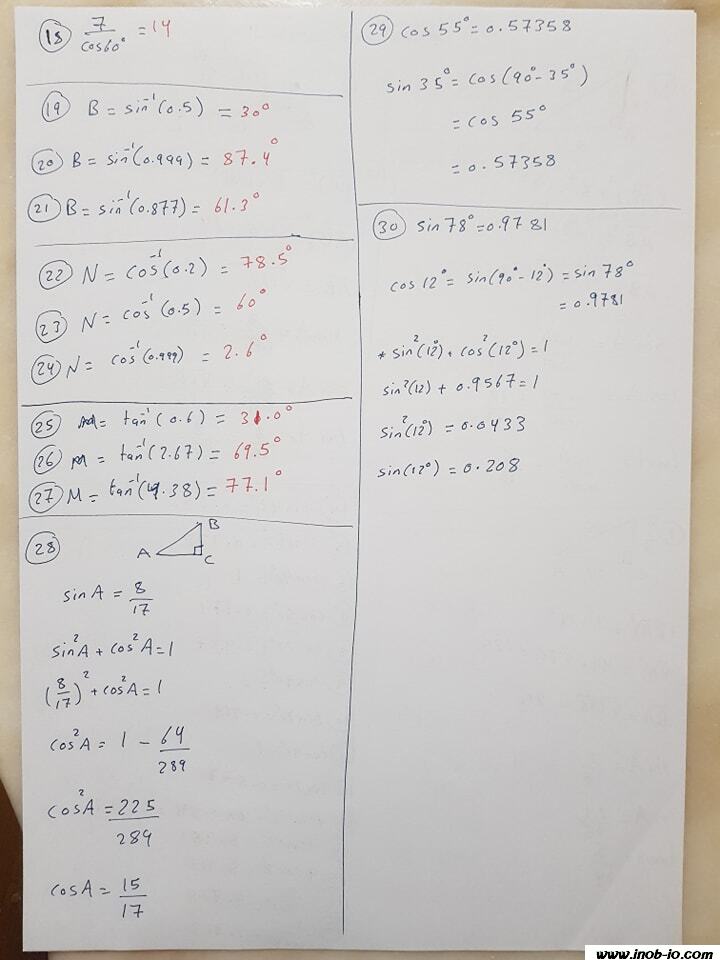 18 7/cos60° = 14
19 B = sin⁻¹(0.5) = 30°
20 B = sin⁻¹(0.999) = 87.4°
21 B = sin⁻¹(0.877) = 61.3°
22 N = cos⁻¹(0.2) = 78.5°
23 N = cos⁻¹(0.5) = 60°
24 N = cos⁻¹(0.999) = 2.6°
25 M = tan⁻¹(0.6) = 31.0°
26 M = tan⁻¹(2.67) = 69.5°
27 M = tan⁻¹(4.38) = 77.1°
28
B
A
C
sin A = 8/17
sin²A + cos²A = 1
(8/17)² + cos²A = 1
cos²A = 1 - 64/289
cos²A = 225/289
cos A = 15/17
29 cos 55° = 0.57358
sin 35° = cos(90° - 35°)
= cos 55°
= 0.57358
30 sin 78° = 0.9781
cos 12° = sin(90° - 12°) = sin 78°
= 0.9781
* sin²(12°) + cos²(12°) = 1
sin²(12) + 0.9567 = 1
sin²(12°) = 0.0433
sin(12°) = 0.208
www.inob-io.com